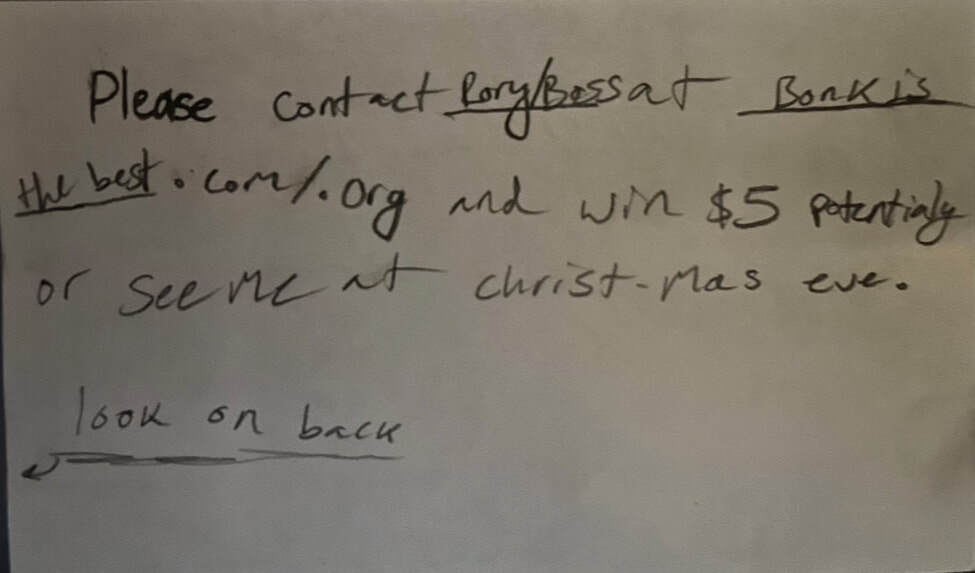 Please contact Rory/Boss at Bonk is
the best.com/.org and win $5 potentialy
or see me at christ-mas eve.
look on back